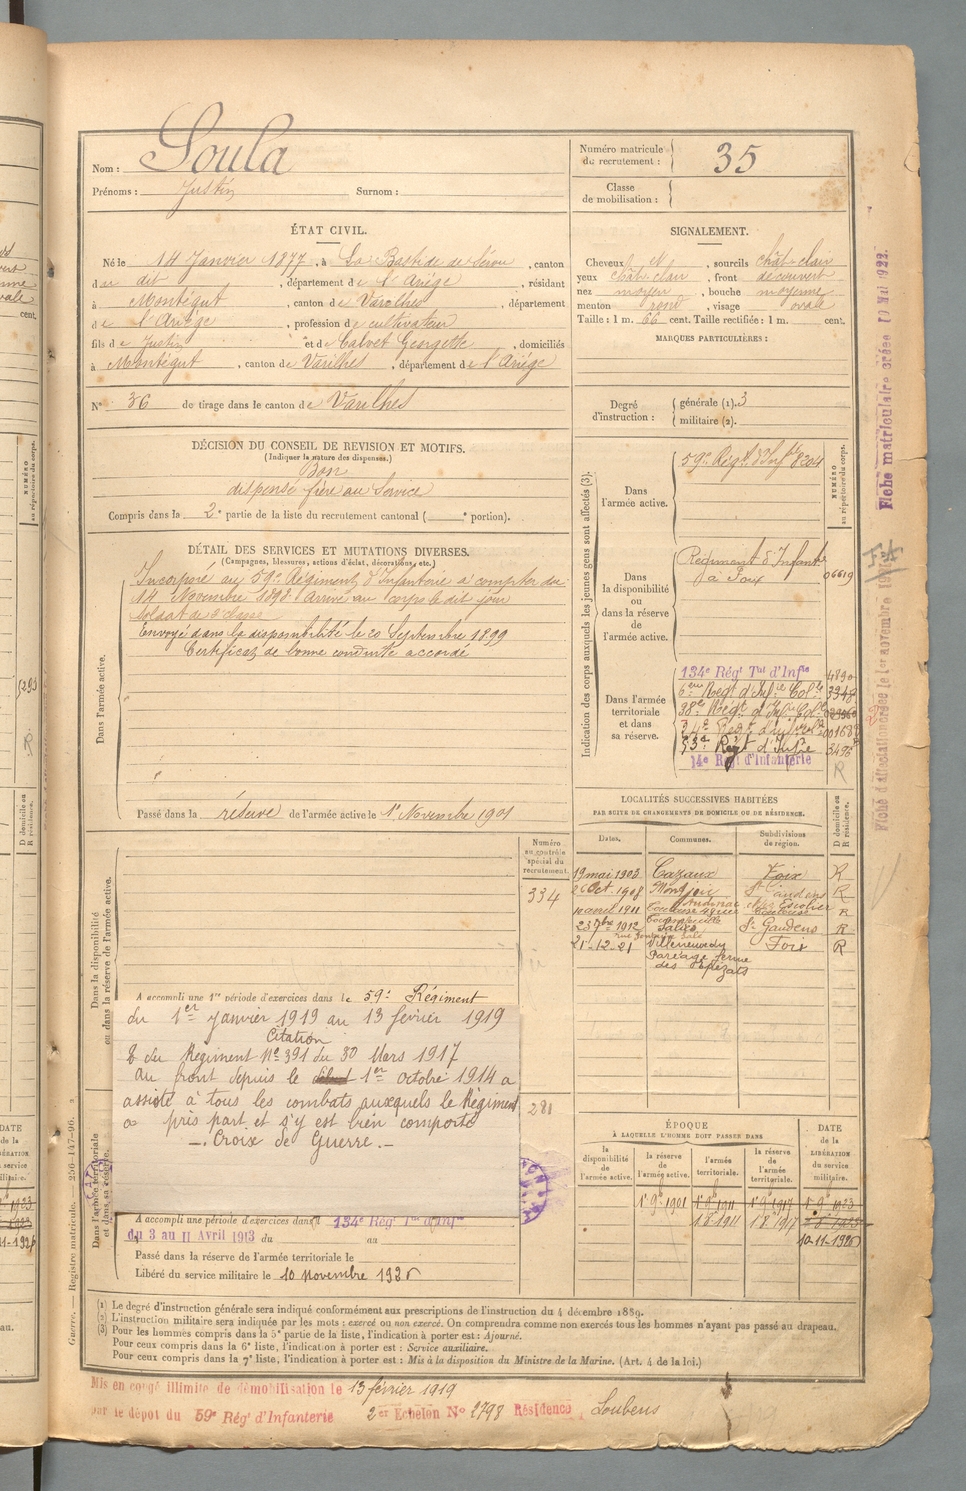 Nom : Soula
Prénoms : Justin Surnom :
Numéro matricule du recrutement : 35
Classe de mobilisation :
ÉTAT CIVIL.
Né le 14 Janvier 1877, à La Bastide de Sérou, canton
du dit, département de l'Ariège, résidant
à Montégut, canton de Varilhes, département
de l'Ariège, profession de cultivateur
fils de Justin et de Calvet Georgette, domiciliés
à Montégut, canton de Varilhes, département de l'Ariège
N° 36 de tirage dans le canton de Varilhes
SIGNALEMENT.
Cheveux, sourcils chât-clair
yeux chât-clair, front découvert
nez moyen, bouche moyenne
menton rond, visage ovale
Taille : 1 m. 66 cent. Taille rectifiée : 1 m. cent.
MARQUES PARTICULIÈRES :
Degré d'instruction : générale (1). 3
militaire (2).
DÉCISION DU CONSEIL DE REVISION ET MOTIFS.
(Indiquer la nature des dispenses.)
Bon
dispensé frère au Service
Compris dans la 2e partie de la liste du recrutement cantonal ( e portion).
DÉTAIL DES SERVICES ET MUTATIONS DIVERSES.
(Campagnes, blessures, actions d'éclat, décorations, etc.)
Dans l'armée active.
Incorporé au 59e Régiment d'Infanterie à compter du
14 Novembre 1898. Arrivé au corps le dit jour
soldat de 2e classe
Envoyé dans la disponibilité le 20 Septembre 1899
Certificat de bonne conduite accordé
Passé dans la réserve de l'armée active le 1er Novembre 1901
Indication des corps auxquels les jeunes gens sont affectés (3).
NUMÉRO au répertoire du corps.
Dans l'armée active.
59e Régt d'Infie 8204
Dans la disponibilité ou dans la réserve de l'armée active.
Régiment d'Infantie
à Foix 06619
Dans l'armée territoriale et dans sa réserve.
134e Régt Tal d'Infie 4890
6eme Régt d'Inf.ie Col.le 3348
38e Régt d'Inf.ie Col.le
53e Régt d'Infie 3496
14e Régt d'Infanterie
R
LOCALITÉS SUCCESSIVES HABITÉES
PAR SUITE DE CHANGEMENTS DE DOMICILE OU DE RÉSIDENCE.
Dates. Communes. Subdivisions de région. D domicile ou R résidence.
19 mai 1903 Cazaux Foix R
26 Oct. 1908 Montjoie St Gaudens R
10 avril 1911 Toulouse R
1912 Salies St Gaudens R
21-12-21 Villeneuve du Pareage ferme des Foix R
Dans la disponibilité ou dans la réserve de l'armée active.
Numéro au contrôle spécial du recrutement.
334
A accompli une 1re période d'exercices dans le 59e Régiment
du 1er Janvier 1919 au 13 fevrier 1919
Citation
du Régiment N° 391 du 30 Mars 1917
au front depuis le 1er octobre 1914 a
assisté à tous les combats auxquels le Régiment
a pris part et s'y est bien comporté
—. Croix de Guerre. —
281
Dans l'armée territoriale et dans sa réserve.
A accompli une période d'exercices dans le 134e Rég. Tal d'Infie
du 3 au 11 Avril 1913 du au
Passé dans la réserve de l'armée territoriale le
Libéré du service militaire le 10 novembre 1926
ÉPOQUE
À LAQUELLE L'HOMME DOIT PASSER DANS
la disponibilité de l'armée active.
la réserve de l'armée active.
l'armée territoriale.
la réserve de l'armée territoriale.
DATE de la LIBÉRATION du service militaire.
1er 9bre 1901 1er 9bre 1911 1er 9bre 1917 1er 9bre 1923
1.8.1911 1.8.1917
10-11-1926
(1) Le degré d'instruction générale sera indiqué conformément aux prescriptions de l'instruction du 4 décembre 1889.
(2) L'instruction militaire sera indiquée par les mots : exercé ou non exercé. On comprendra comme non exercés tous les hommes n'ayant pas passé au drapeau.
(3) Pour les hommes compris dans la 5e partie de la liste, l'indication à porter est : Ajourné.
Pour ceux compris dans la 6e liste, l'indication à porter est : Service auxiliaire.
Pour ceux compris dans la 7e liste, l'indication à porter est : Mis à la disposition du Ministre de la Marine. (Art. 4 de la loi.)
Mis en congé illimité de démobilisation le 13 février 1919
par le dépôt du 59e Régt d'Infanterie 2e Echelon N° 2798 Résidence Loubens
Guerre. — Registre matricule. — 256-147-96.
Fiche matriculaire créée 10 Mai 1922.